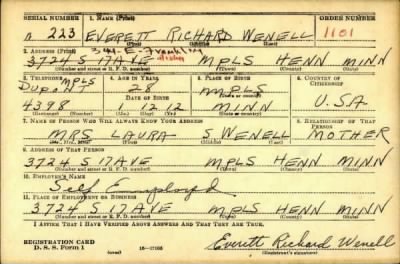 SERIAL NUMBER 1. NAME (Print) ORDER NUMBER
n 223 EVERETT RICHARD WENELL 1101
(First) (Middle) (Last)
344-E-Franklin
2. ADDRESS (Print)
3724 S 17 AVE MPLS HENN MINN
(Number and street or R. F. D. number) (Town) (County) (State)
3. TELEPHONE 4. AGE IN YEARS 5. PLACE OF BIRTH 6. COUNTRY OF CITIZENSHIP
MPLS
DUPONT 28 MPLS
DATE OF BIRTH (Town or county)
4398 1 12 12 MINN U.S.A
(Mo.) (Day) (Yr.) (State or country)
7. NAME OF PERSON WHO WILL ALWAYS KNOW YOUR ADDRESS 8. RELATIONSHIP OF THAT PERSON
MRS LAURA S. WENELL MOTHER
(Mr., Mrs., Miss) (First) (Middle) (Last)
9. ADDRESS OF THAT PERSON
3724 S 17 AVE MPLS HENN MINN
(Number and street or R. F. D. number) (Town) (County) (State)
10. EMPLOYER'S NAME
Self Employd
11. PLACE OF EMPLOYMENT OR BUSINESS
3724 S 17 AVE MPLS HENN MINN
(Number and street or R. F. D. number) (Town) (County) (State)
I AFFIRM THAT I HAVE VERIFIED ABOVE ANSWERS AND THAT THEY ARE TRUE.
REGISTRATION CARD
D. S. S. Form 1 (over) Everett Richard Wenell
(Registrant's signature)